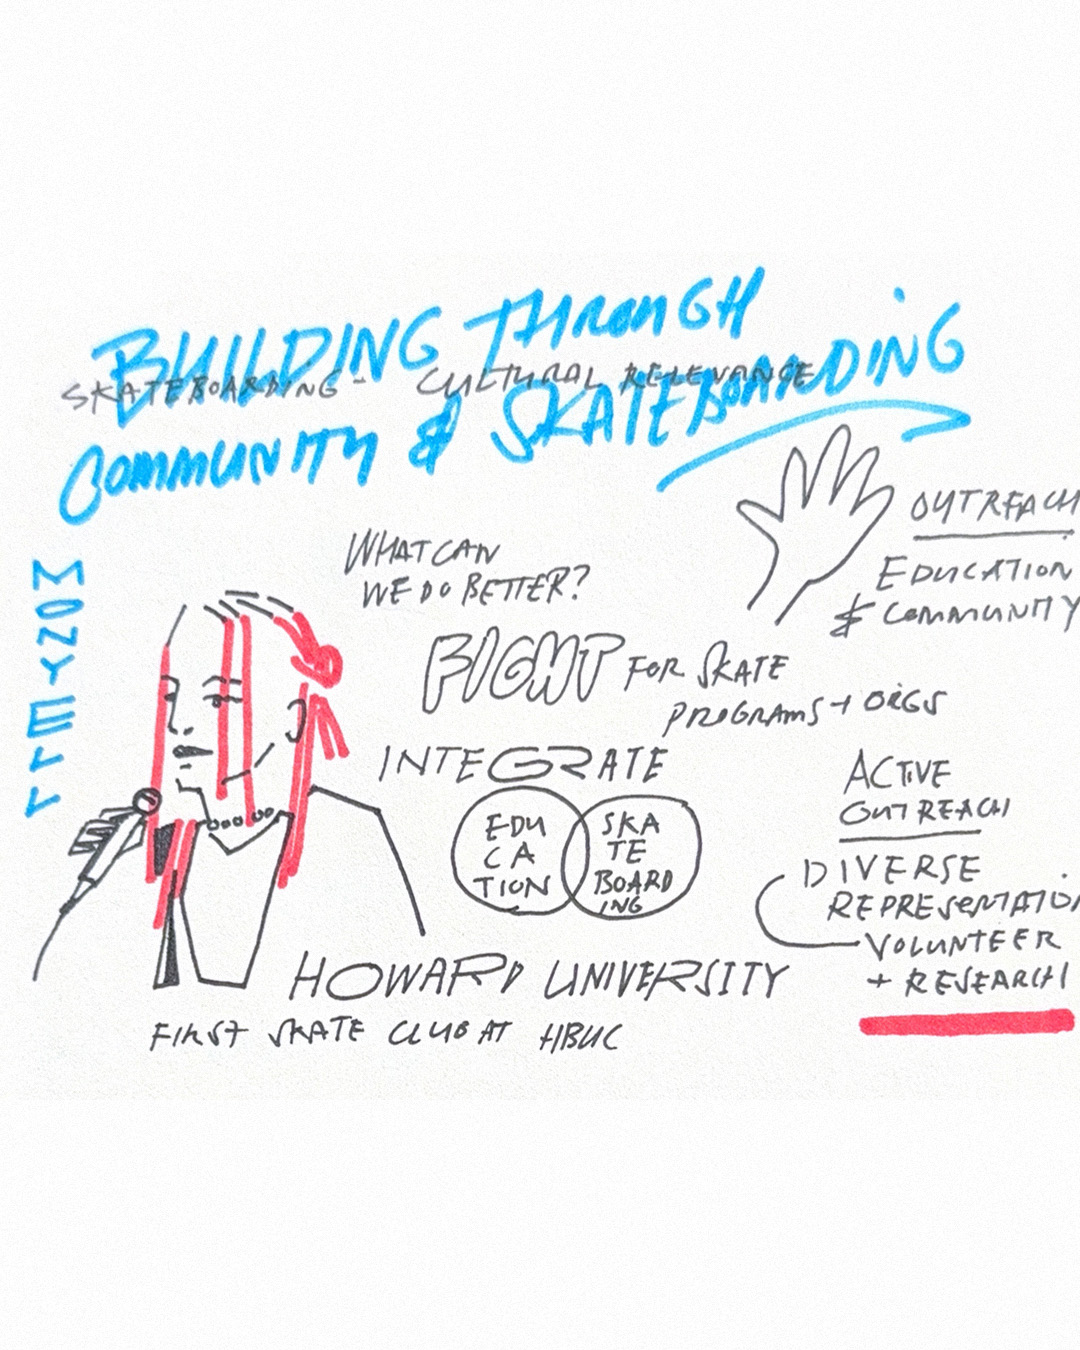 BUILDING THROUGH
SKATEBOARDING - CULTURAL RELEVANCE
COMMUNITY & SKATEBOARDING
MONYELL
WHAT CAN
WE DO BETTER?
OUTREACH
EDUCATION
& COMMUNITY
FIGHT FOR SKATE
PROGRAMS + ORGS
INTEGRATE
EDU
CA
TION
SKA
TE
BOARD
ING
ACTIVE
OUTREACH
DIVERSE
REPRESENTATION
VOLUNTEER
+ RESEARCH
HOWARD UNIVERSITY
FIRST SKATE CLUB AT HBUC